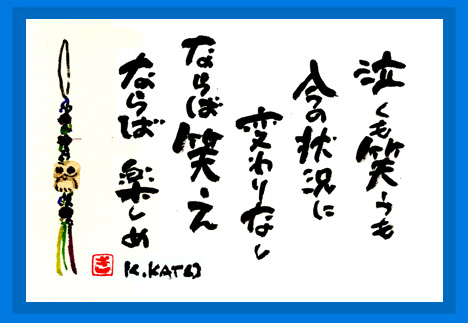 泣くも笑うも
今の状況に
変わりなし
ならば笑え
ならば 楽しめ